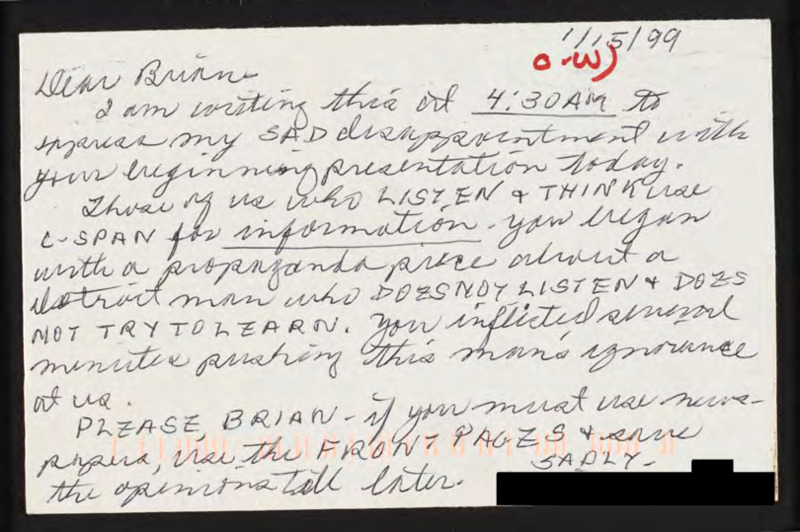 1/15/99
O-W)
Dear Brian-
I am writing this at 4:30AM to
express my SAD disappointment with
your beginning presentation today.
Those of us who LISTEN & THINK use
C-SPAN for information - you began
with a propaganda piece about a
Detroit man who DOES NOT LISTEN & DOES
NOT TRY TO LEARN. You inflicted several
minutes pushing this man's ignorance
at us.
PLEASE BRIAN - if you must use news-
papers, use the FRONT PAGES & save
the opinions till later.
SADLY-